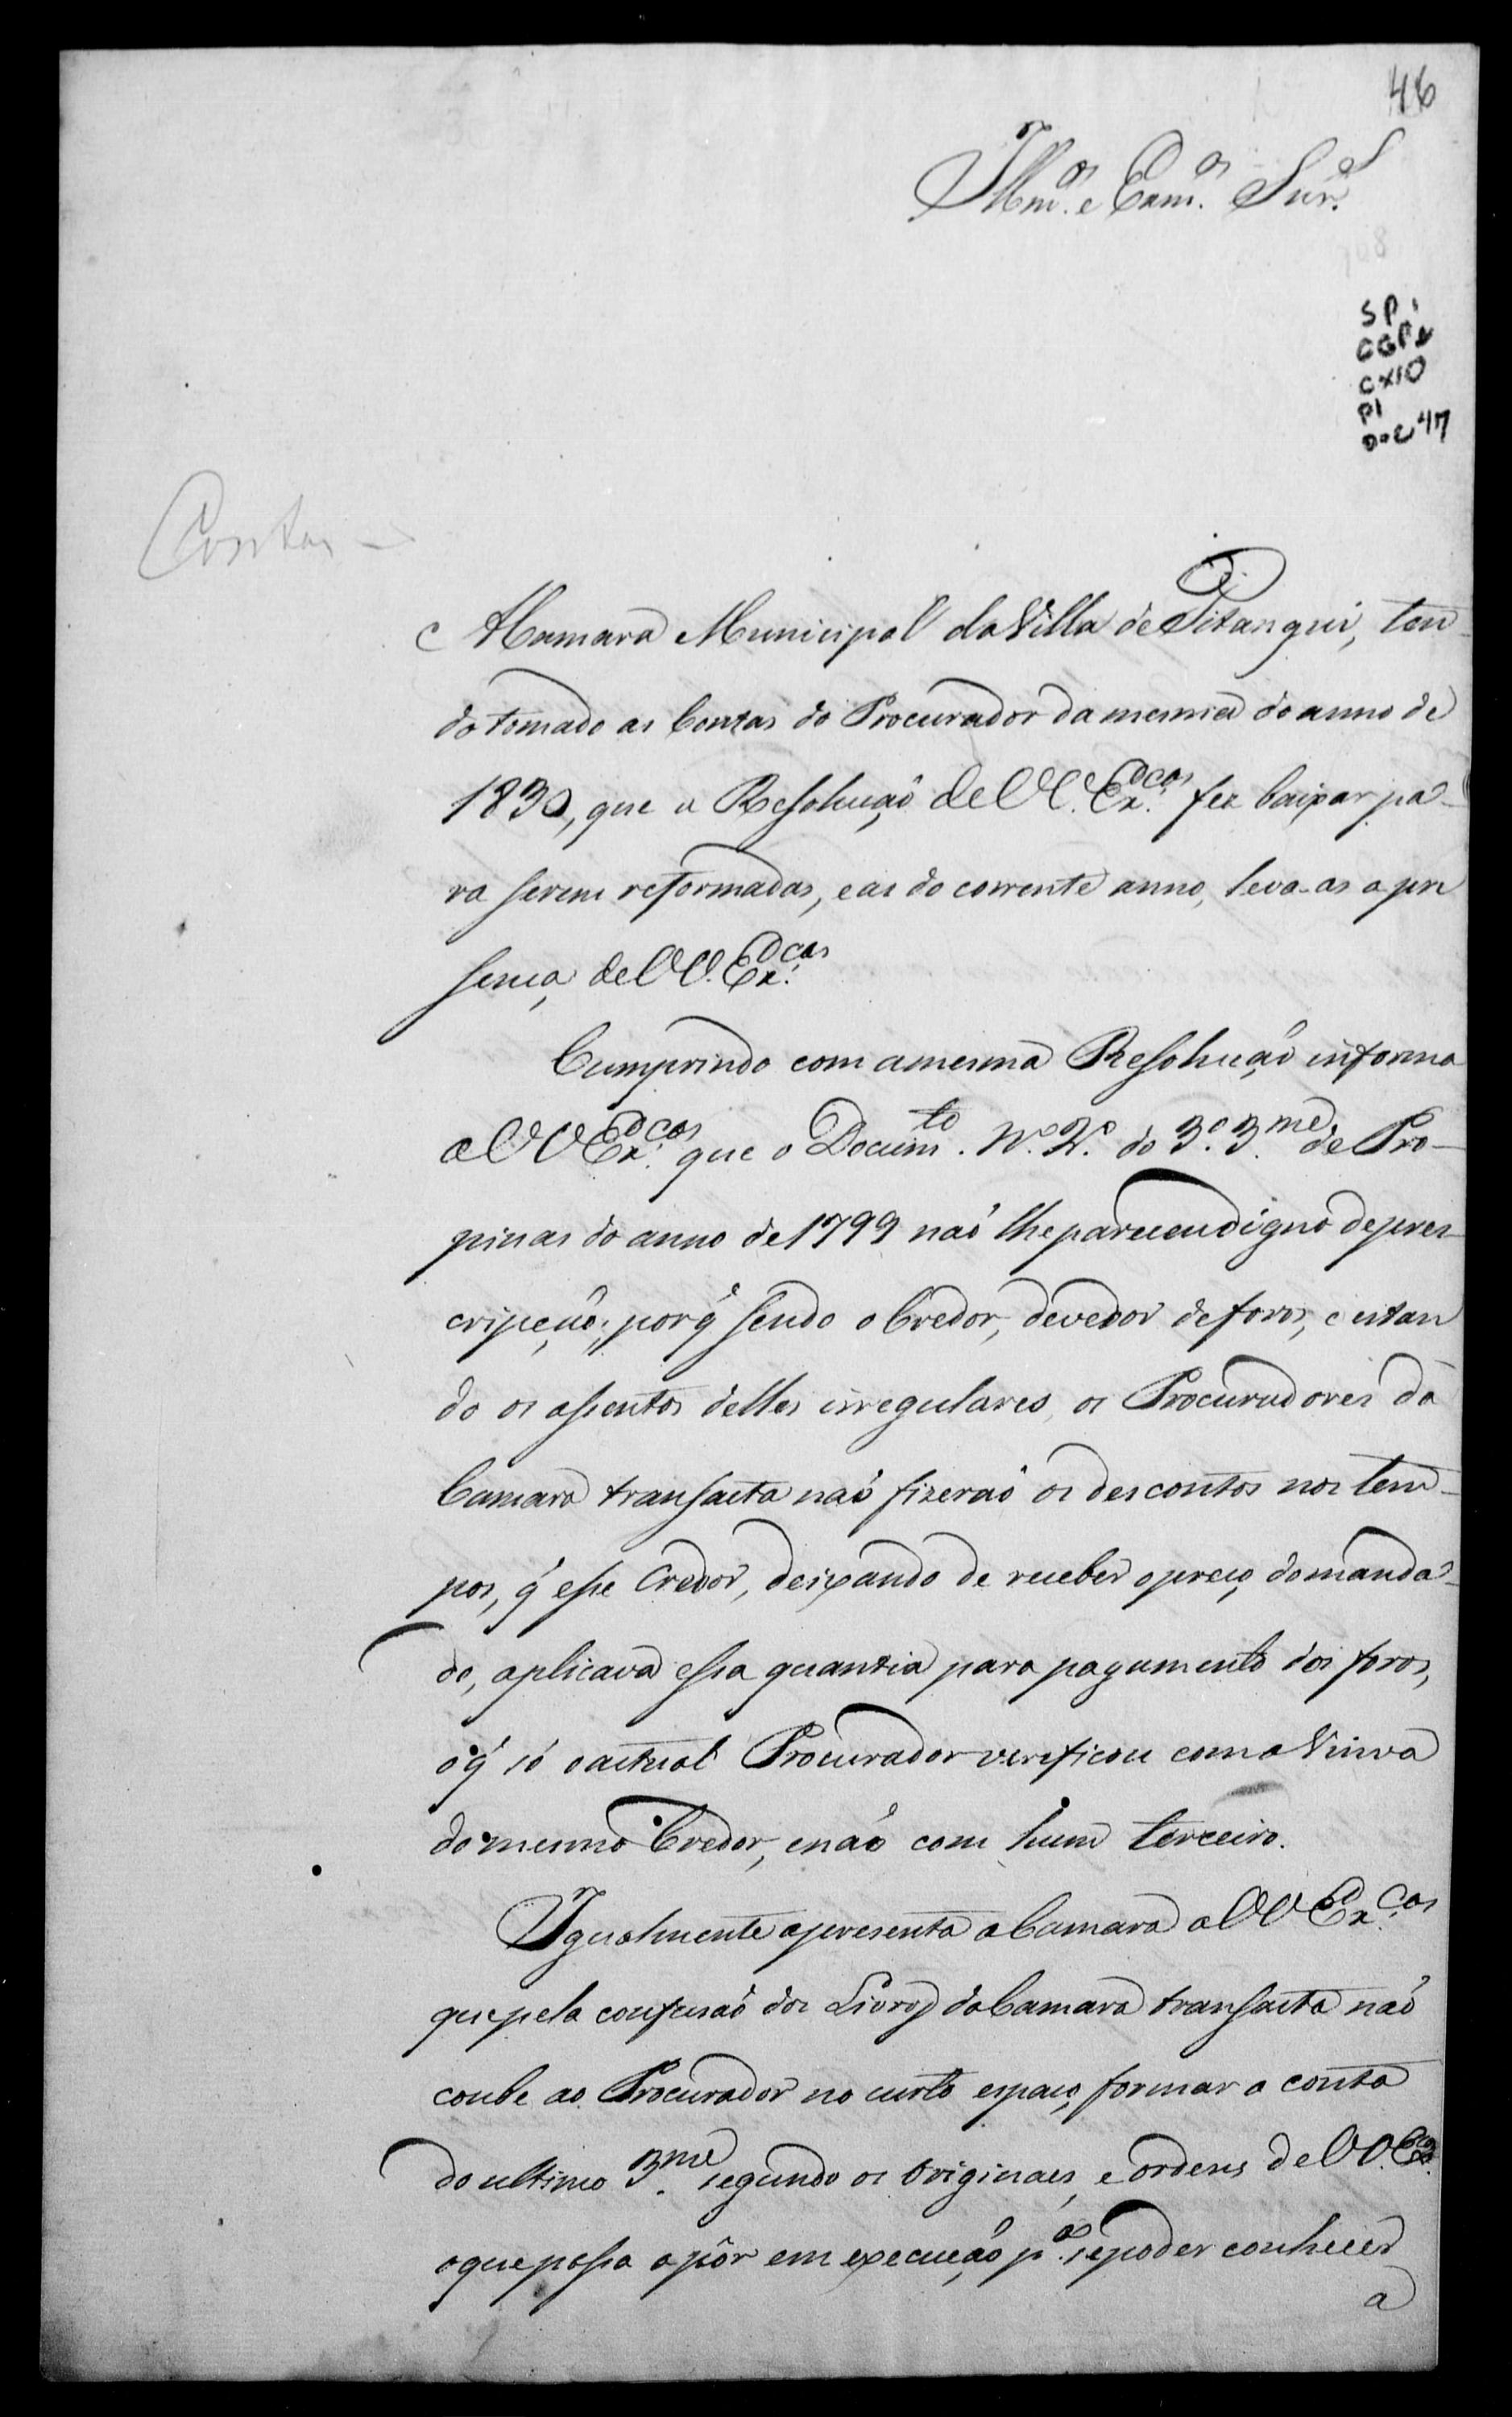 46
Illm.os e Exm.os Snr.s
SP 1
CGP1
CX10
P1
Doc 47
Contas -
A Camara Municipal da Villa de Pitangui, ten-
do tomado as Contas do Procurador da mesma do anno de
1830, que a Resoluçaõ de VV. Ex.cas fez baixar pa-
ra serem reformadas, e as do corrente anno, leva-as a pre
sença de VV. Ex.cas
Cumprindo com a mesma Resoluçaõ informa
a VV Ex.cas que o Docum.to N.º 2.º do 3.º 3.me de Pro-
pinas do anno de 1799 naõ lhe pareceu digno de pres-
cripçaõ; porq̃ sendo o Credor, devedor de foros, e estan
do os assentos delles irregulares, os Procuradores da
Camara transacta naõ fizeraõ os descontos nos tem-
pos, q̃ esse Credor, deixando de receber o preço do manda-
do, aplicava essa quantia para pagamento dos foros,
o q̃ só o actual Procurador verificou com a Viuva
do mesmo Credor, e naõ com hum terceiro.
Igualmente apresenta a Camara a VV Ex.cas
que pela confusaõ dos Livros da Camara transacta naõ
coube ao Procurador no curto espaço formar a conta
do ultimo 3.me segundo os Originaes, e ordens de VV. Ex.cas
o que passa a pôr em execuçaõ p.a se poder conhecer
a